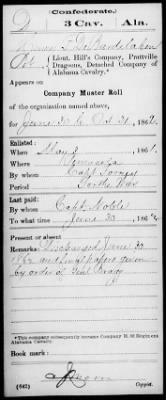 (Confederate.)
D 3 Cav. Ala.
Pvt. Lieut. Hill's Company, Prattville
Dragoons, Detached Company of
Alabama Cavalry.*
Appears on
Company Muster Roll
of the organization named above,
for June 30 to Oct 31, 1862.
Enlisted:
When May 8, 1861.
Where Pensacola
By whom Capt
Period
Last paid:
By whom Capt. Noble
To what time June 30, 186
Present or absent
Remarks: Discharged June 30
1862 and final papers given
by order of Genl Bragg
*This company subsequently became Company H, 3d Regiment
Alabama Cavalry.
Book mark:
(642) Copyist.